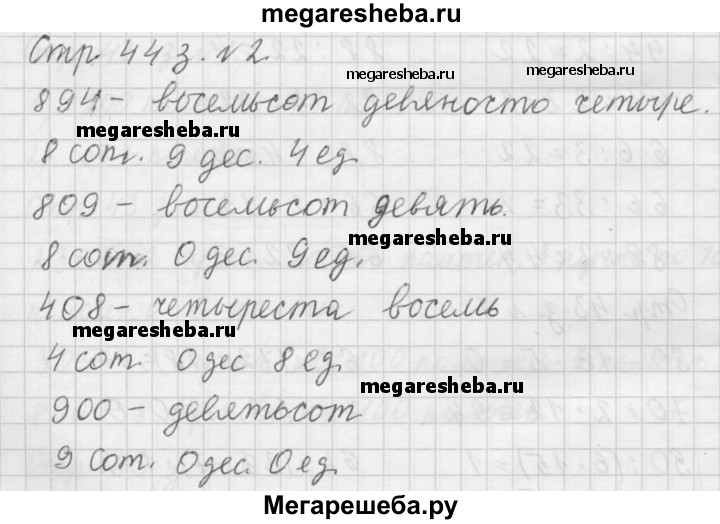 megaresheba.ru
Стр. 44 з. №2.
megaresheba.ru megaresheba.ru
894 - восемьсот девяносто четыре.
megaresheba.ru
8 сот. 9 дес. 4 ед.
809 - восемьсот девять.
megaresheba.ru
8 сот. 0 дес. 9 ед.
408 - четыреста восемь
megaresheba.ru
4 сот. 0 дес 8 ед.
megaresheba.ru
900 - девятьсот
9 сот. 0 дес. 0 ед.
Мегарешеба.ру